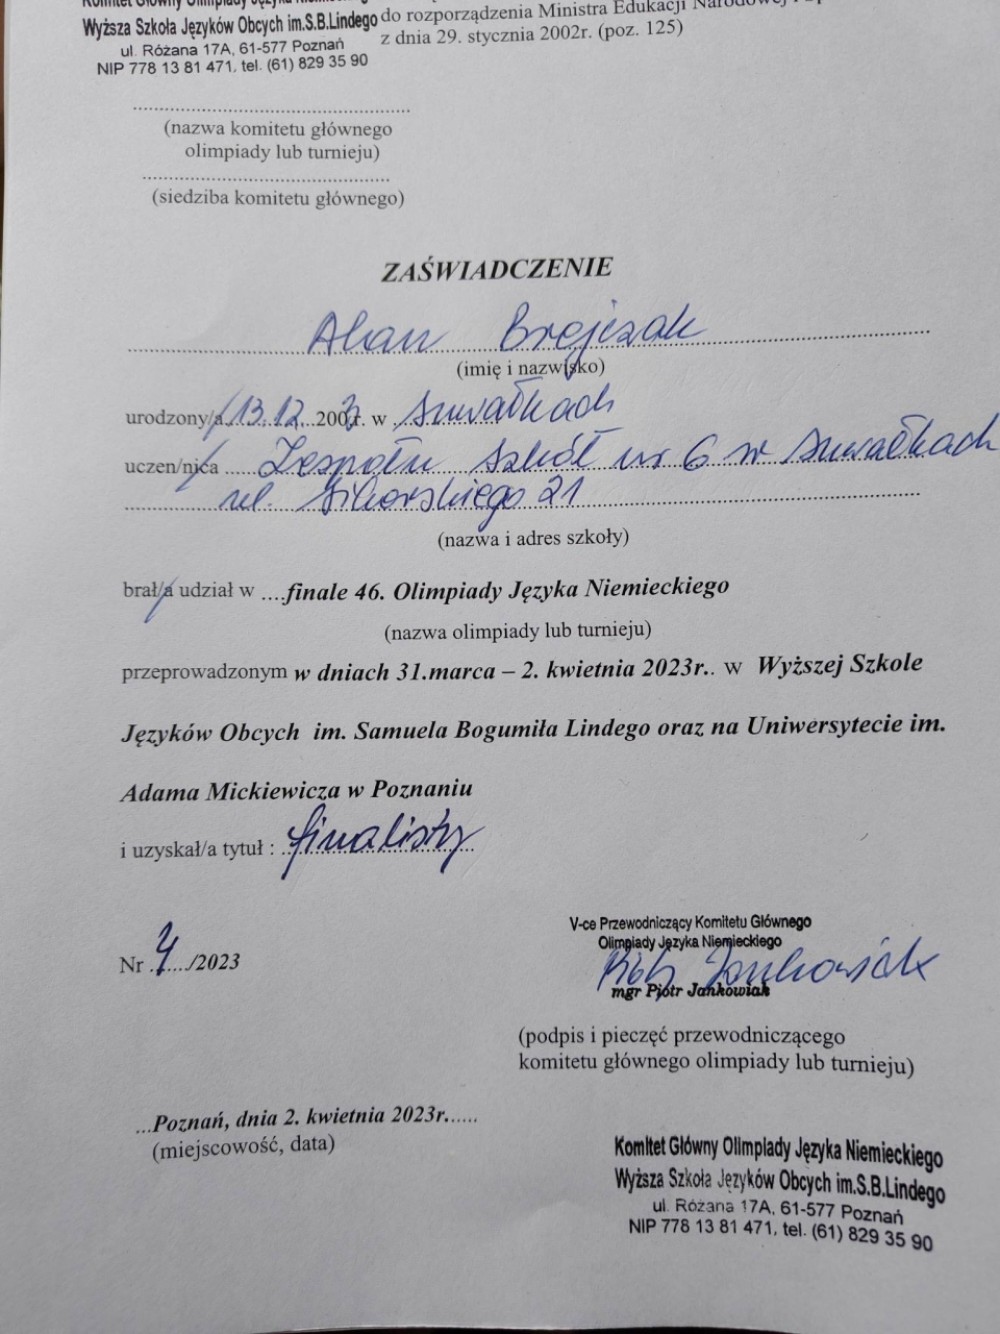 Komitet Główny Olimpiady Języka
Wyższa Szkoła Języków Obcych im.S.B.Lindego
ul. Różana 17A, 61-577 Poznań
NIP 778 13 81 471, tel. (61) 829 35 90
do rozporządzenia Ministra Edukacji Narodowej
z dnia 29. stycznia 2002r. (poz. 125)
(nazwa komitetu głównego
olimpiady lub turnieju)
(siedziba komitetu głównego)
ZAŚWIADCZENIE
Alan Brejczak
(imię i nazwisko)
urodzony/a 13.12. 200 r. w Suwałkach
uczen/nica Zespołu Szkół nr 6 w Suwałkach
ul. Sikorskiego 21
(nazwa i adres szkoły)
brał/a udział w ....finale 46. Olimpiady Języka Niemieckiego
(nazwa olimpiady lub turnieju)
przeprowadzonym w dniach 31.marca – 2. kwietnia 2023r.. w Wyższej Szkole
Języków Obcych im. Samuela Bogumiła Lindego oraz na Uniwersytecie im.
Adama Mickiewicza w Poznaniu
i uzyskał/a tytuł : finalisty
Nr ...../2023
V-ce Przewodniczący Komitetu Głównego
Olimpiady Języka Niemieckiego
Piotr Jankowiak
mgr Piotr Jankowiak
(podpis i pieczęć przewodniczącego
komitetu głównego olimpiady lub turnieju)
...Poznań, dnia 2. kwietnia 2023r......
(miejscowość, data)
Komitet Główny Olimpiady Języka Niemieckiego
Wyższa Szkoła Języków Obcych im.S.B.Lindego
ul. Różana 17A, 61-577 Poznań
NIP 778 13 81 471, tel. (61) 829 35 90